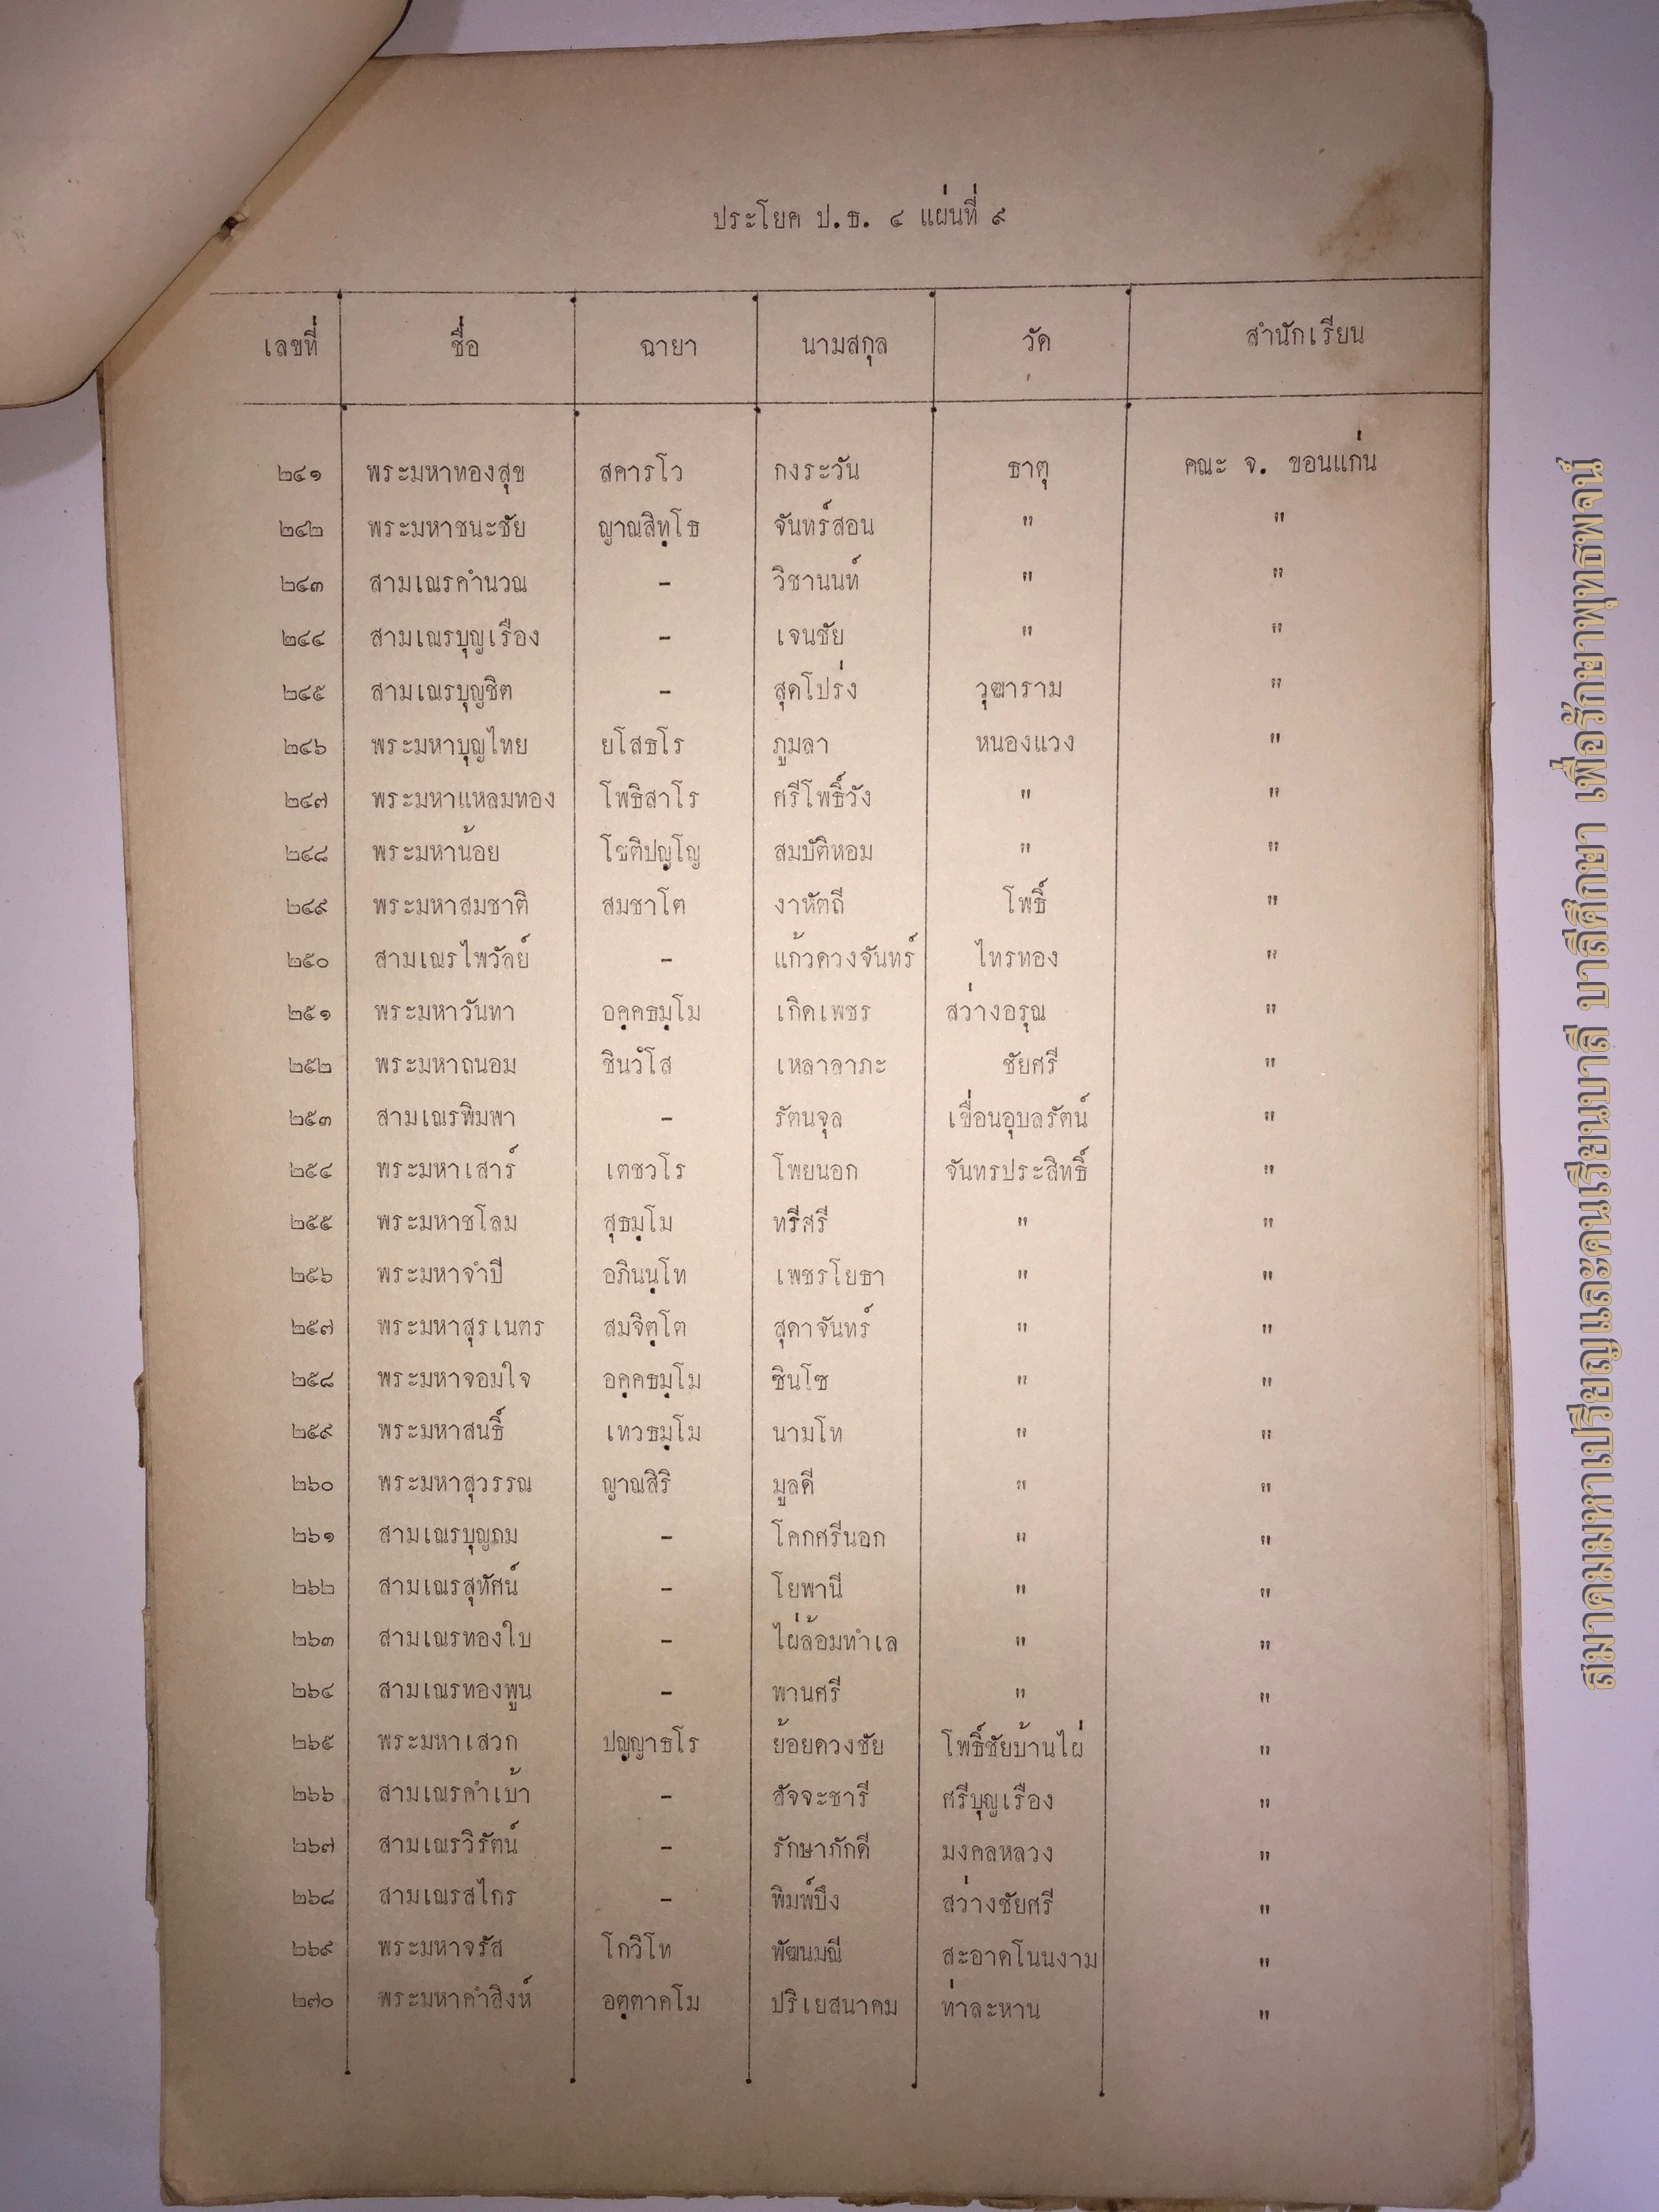 ประโยค ป.ธ. ๔ แผ่นที่ ๙
เลขที่ ชื่อ ฉายา นามสกุล วัด สำนักเรียน
๒๔๑ พระมหาทองสุข สคารโว กงระวัน ธาตุ คณะ จ. ขอนแก่น
๒๔๒ พระมหาชนะชัย ญาณสิทฺโธ จันทร์สอน " "
๒๔๓ สามเณรคำนวณ - วิชานนท์ " "
๒๔๔ สามเณรบุญเรือง - เจนชัย " "
๒๔๕ สามเณรบุญชิต - สุดโปร่ง วุฒาราม "
๒๔๖ พระมหาบุญไทย ยโสธโร ภูมลา หนองแวง "
๒๔๗ พระมหาแหลมทอง โพธิสาโร ศรีโพธิ์วัง " "
๒๔๘ พระมหาน้อย โชติปญฺโญ สมบัติหอม " "
๒๔๙ พระมหาสมชาติ สมชาโต งาหัตถี โพธิ์ "
๒๕๐ สามเณรไพวัลย์ - แก้วดวงจันทร์ ไทรทอง "
๒๕๑ พระมหาวันทา อคฺคธมฺโม เกิดเพชร สว่างอรุณ "
๒๕๒ พระมหาถนอม ชินวํโส เหลาลาภะ ชัยศรี "
๒๕๓ สามเณรพิมพา - รัตนจุล เขื่อนอุบลรัตน์ "
๒๕๔ พระมหาเสาร์ เตชวโร โพยนอก จันทรประสิทธิ์ "
๒๕๕ พระมหาชโลม สุธมฺโม ทรีศรี " "
๒๕๖ พระมหาจำปี อภินนฺโท เพชรโยธา " "
๒๕๗ พระมหาสุรเนตร สมจิตฺโต สุดาจันทร์ " "
๒๕๘ พระมหาจอมใจ อคฺคธมฺโม ซินโซ " "
๒๕๙ พระมหาสนธิ์ เทวธมฺโม นามโท " "
๒๖๐ พระมหาสุวรรณ ญาณสิริ มูลดี " "
๒๖๑ สามเณรบุญถม - โคกศรีนอก " "
๒๖๒ สามเณรสุทัศน์ - โยพานี " "
๒๖๓ สามเณรทองใบ - ไผ่ล้อมทำเล " "
๒๖๔ สามเณรทองพูน - พานศรี " "
๒๖๕ พระมหาเสวก ปญฺญาธโร ย้อยดวงชัย โพธิ์ชัยบ้านไผ่ "
๒๖๖ สามเณรคำเบ้า - สัจจะชารี ศรีบุญเรือง "
๒๖๗ สามเณรวิรัตน์ - รักษาภักดี มงคลหลวง "
๒๖๘ สามเณรสไกร - พิมพ์บึง สว่างชัยศรี "
๒๖๙ พระมหาจรัส โกวิโท พัฒนมณี สะอาดโนนงาม "
๒๗๐ พระมหาคำสิงห์ อตฺตาคโม ปริเยสนาคม ท่าละหาน "
สมาคมมหาเปรียญและคนเรียนบาลี บาลีศึกษา เพื่อรักษาพุทธพจน์